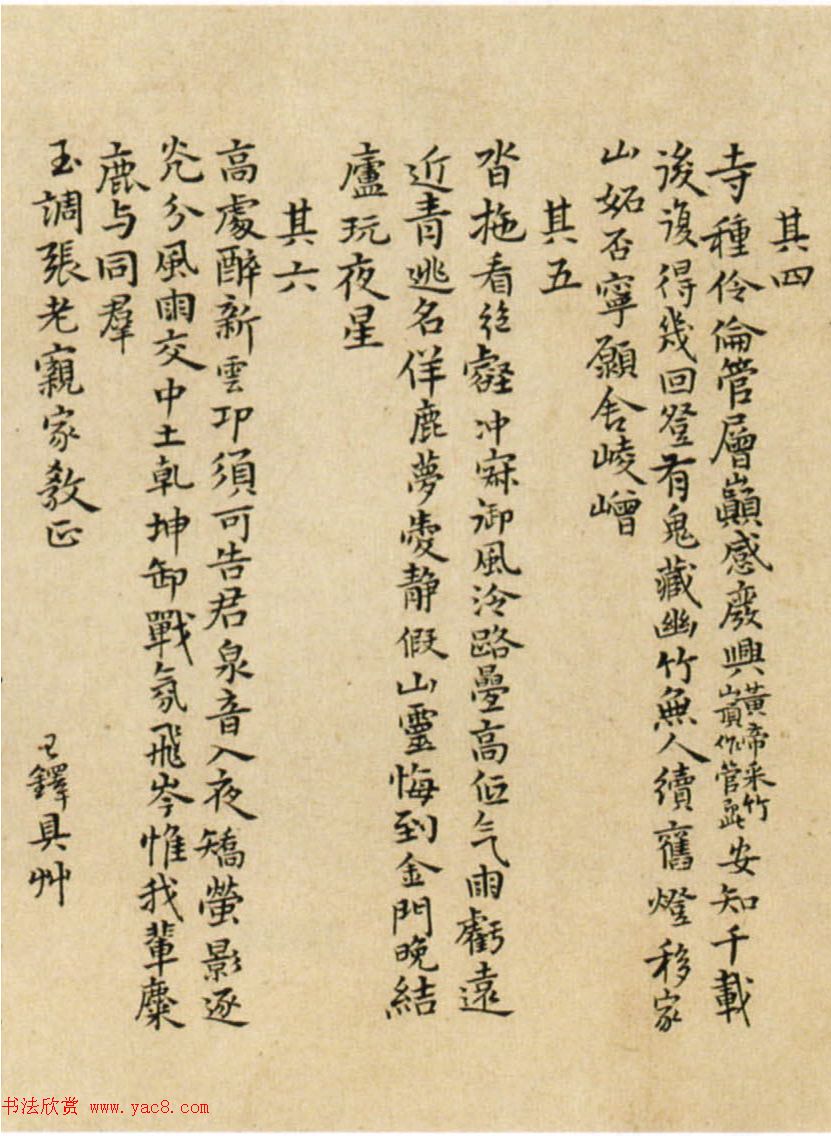 其四
寺種伶倫管層巔感廢興黃帝采竹山頂作管安知千載
後復得幾回登有鬼藏幽竹無人續舊燈移家
山妬否寧願舍崚嶒
其五
沓拖看絕壑沖寐御風泠路疊高低气雨虧遠
近青逃名佯鹿夢愛靜假山靈悔到金門晚結
廬玩夜星
其六
高處醉新雲邛須可告君泉音入夜矯螢影逐
光分風雨交中土乹坤卸戰氛飛岑惟我輩麋
鹿与同群
玉調張老親家教正
王鐸具艸
书法欣赏 www.yac8.com